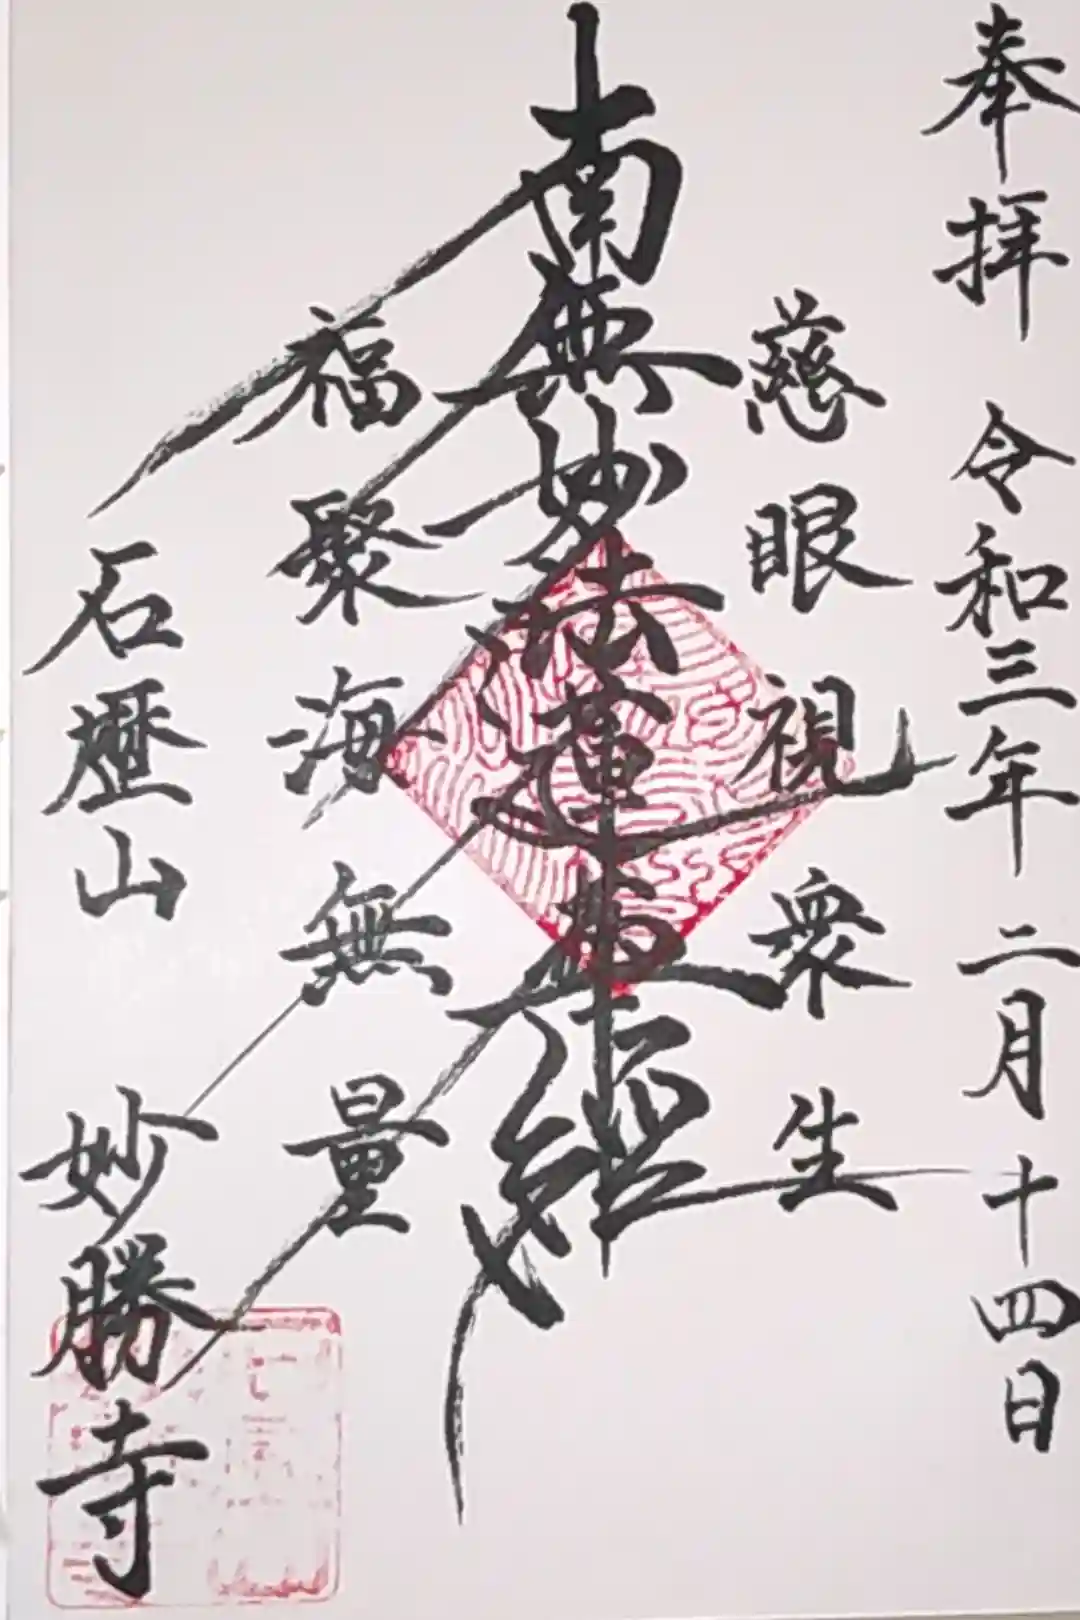 奉拝 令和三年 二月 十四日
慈眼視衆生
南無妙法蓮華経
福聚海無量
石壓山 妙勝寺